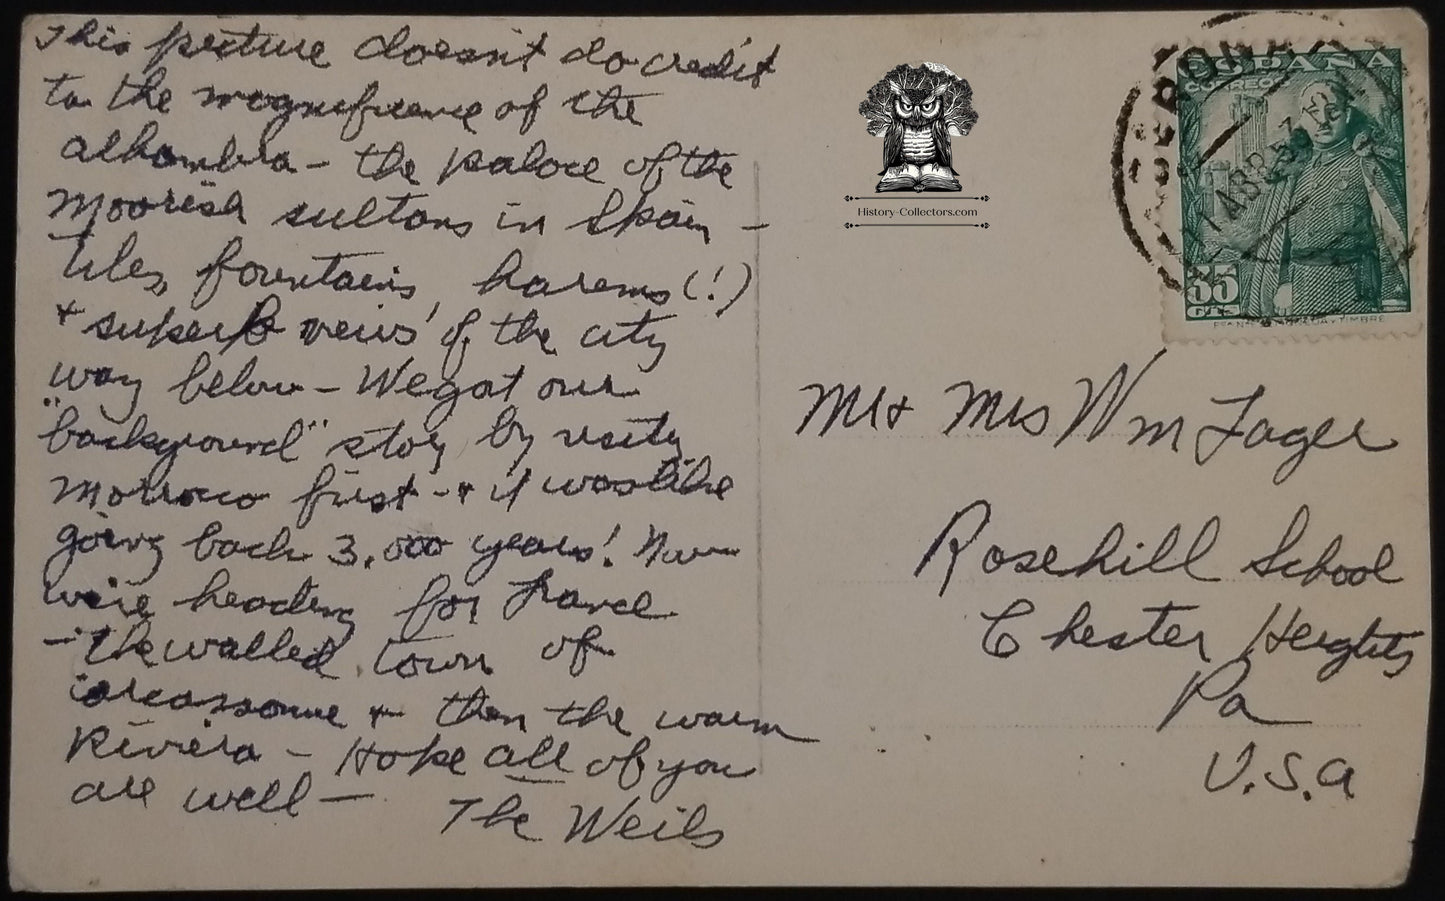 This picture doesn't do credit
to the magnificence of the
alhambra - the palace of the
Moorish sultans in Spain -
tiles, fountains, harems (!)
+ superb views of the city
way below - We got our
"background" story by
Morroco first - + it was like
going back 3,000 years! Now
we're heading for France
- the walled town of
carcassonne + then the warm
Riviera - Hope all of you
are well -
The Weils
History-Collectors.com
ESPAÑA
CORREOS
35
CTS
Mr + Mrs Wm
Rosehill School
Chester Heights
Pa
U.S.A